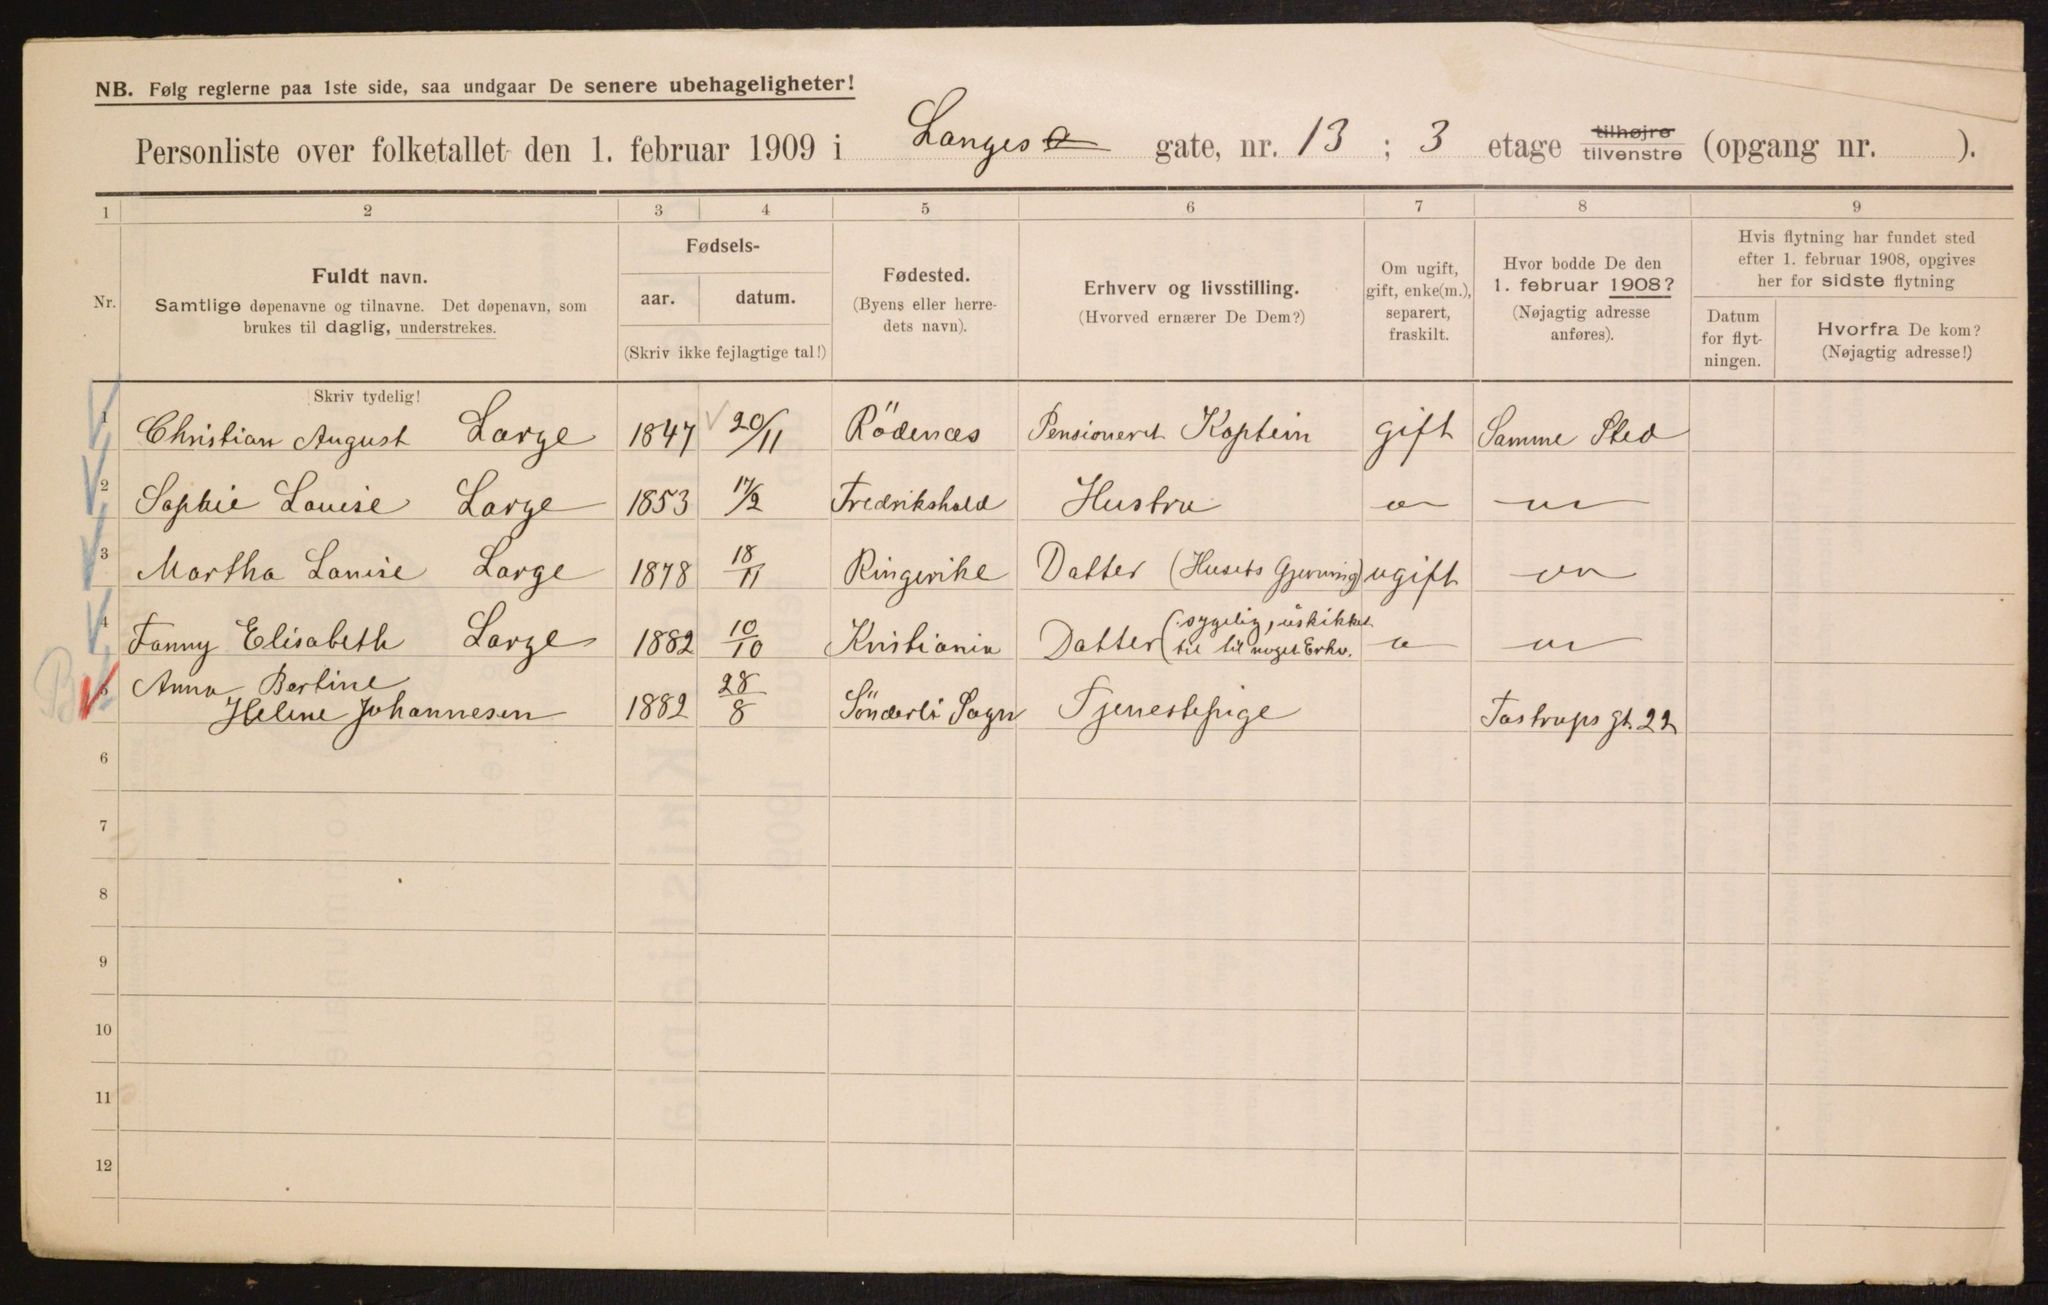 NB. Følg reglerne paa 1ste side, saa undgaar De senere ubehageligheter!
Personliste over folketallet den 1. februar 1909 i Langes gate, nr. 13 ; 3 etage tilhøjre tilvenstre (opgang nr. ).
1 2 3 4 5 6 7 8 9
Nr.
Fuldt navn.
Samtlige døpenavne og tilnavne. Det døpenavn, som
brukes til daglig, understrekes.
Fødsels-
aar. datum.
(Skriv ikke fejlagtige tal!)
Fødested.
(Byens eller herre-
dets navn).
Erhverv og livsstilling.
(Hvorved ernærer De Dem?)
Om ugift,
gift, enke(m.),
separert,
fraskilt.
Hvor bodde De den
1. februar 1908?
(Nøjagtig adresse
anføres).
Hvis flytning har fundet sted
efter 1. februar 1908, opgives
her for sidste flytning
Datum
for flyt-
ningen.
Hvorfra De kom?
(Nøjagtig adresse!)
Skriv tydelig!
1 Christian August Lorge 1847 20/11 Rödenæs Pensioneret Kaptein gift Samme Sted
2 Sophie Louise Lorge 1853 17/2 Fredrikshald Hustru
3 Martha Louise Lorge 1878 18/11 Ringerike Datter (Husets Gjerning) ugift
4 Fanny Elisabeth Lorge 1882 10/10 Kristiania Datter (sygelig, uskikket
til til noget Erhv.
5 Anna Bertine
Helene Johannesen 1882 28/8 Sönderli Sogn Tjenestepige Tostrups gt. 22
6
7
8
9
10
11
12